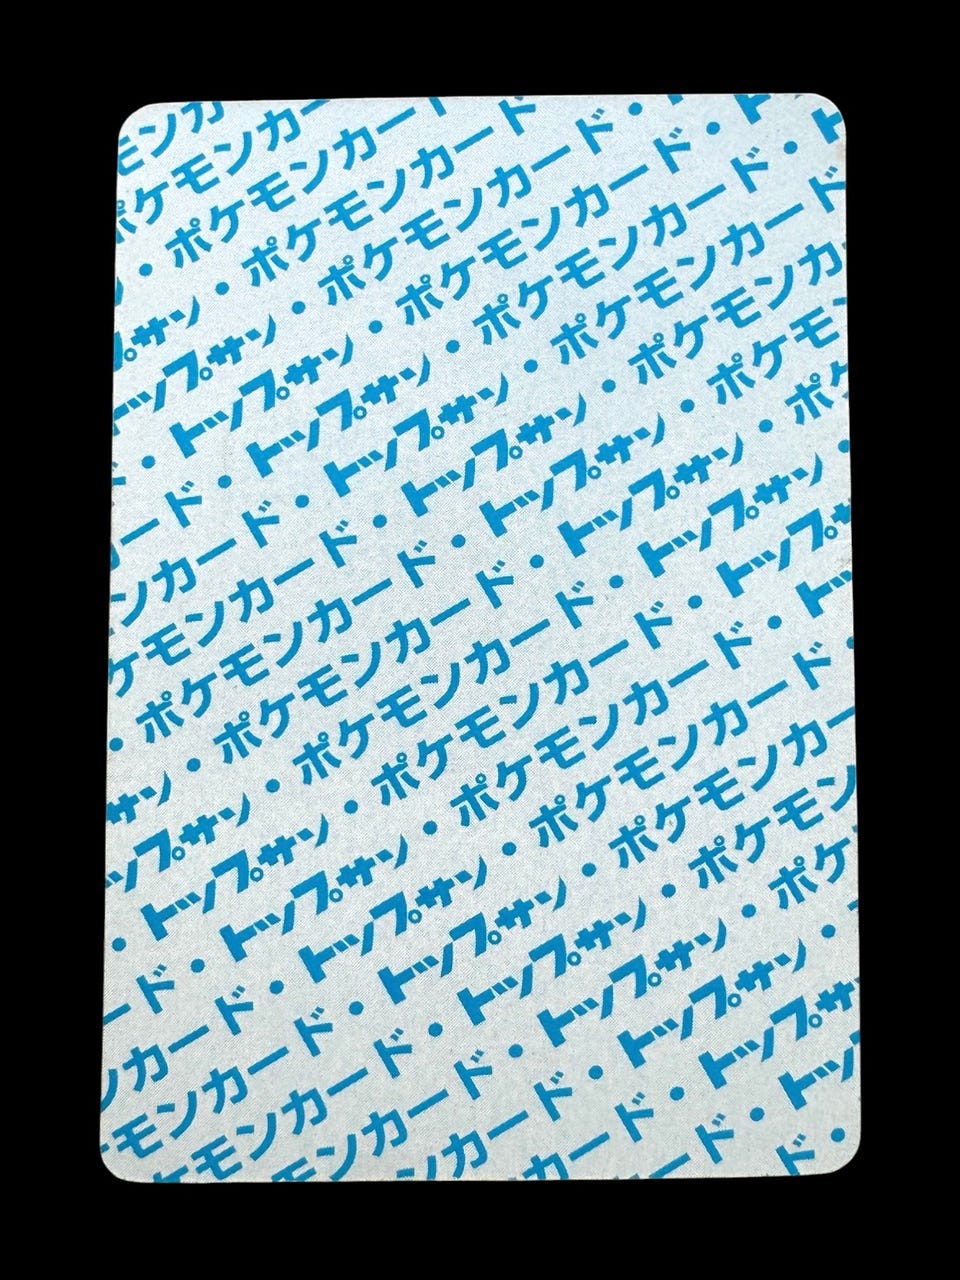 モンカ
ポケモンカー
・ポケモンカー
サン・ポケモンカード
トップサン・ポケモンカード・
・トップサン・ポケモンカード・ト
ード・トップサン・ポケモンカード・ト
ンカード・トップサン・ポケモンカード
ケモンカード・トップサン・ポケモンカ
・ポケモンカード・トップサン・ポケモン
サン・ポケモンカード・トップサン・ポケ
ップサン・ポケモンカード・トップサン・
・トップサン・ポケモンカード・トップ
ード・トップサン・ポケモンカード・トッ
ンカード・トップサン・ポケモンカード・
モンカード・トップサン・ポケモンカー
ケモンカード・トップサン・ポケモン
モンカード・トップサン・ポケ
ンカード・トップサン・
カード・トップサ
ード・トッ
ド・